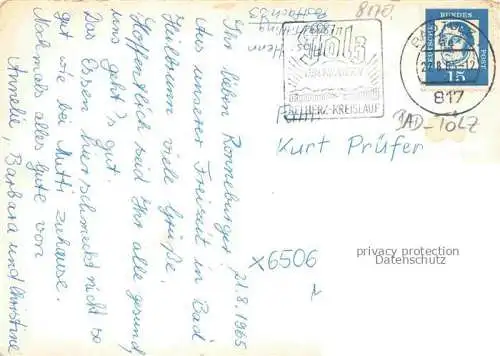 Ihr lieben Ronneburger!
Aus unserer Freizeit in Bad
Heilbrunn viele Grüße.
Hoffentlich seid Ihr alle gesund,
uns geht's gut.
Das Essen hier schmeckt nicht so
gut wie bei Mutti zuhause.
Nochmals alles Gute von
Annelie, Barbara und Christine
21.8.1965
8170.
Tölz
HERZ-KREISLAUF
BAD TÖLZ
817
DEUTSCHE
BUNDES
POST
15
BAD-TÖLZ
Kurt Prüfer
x6506
privacy protection
Datenschutz